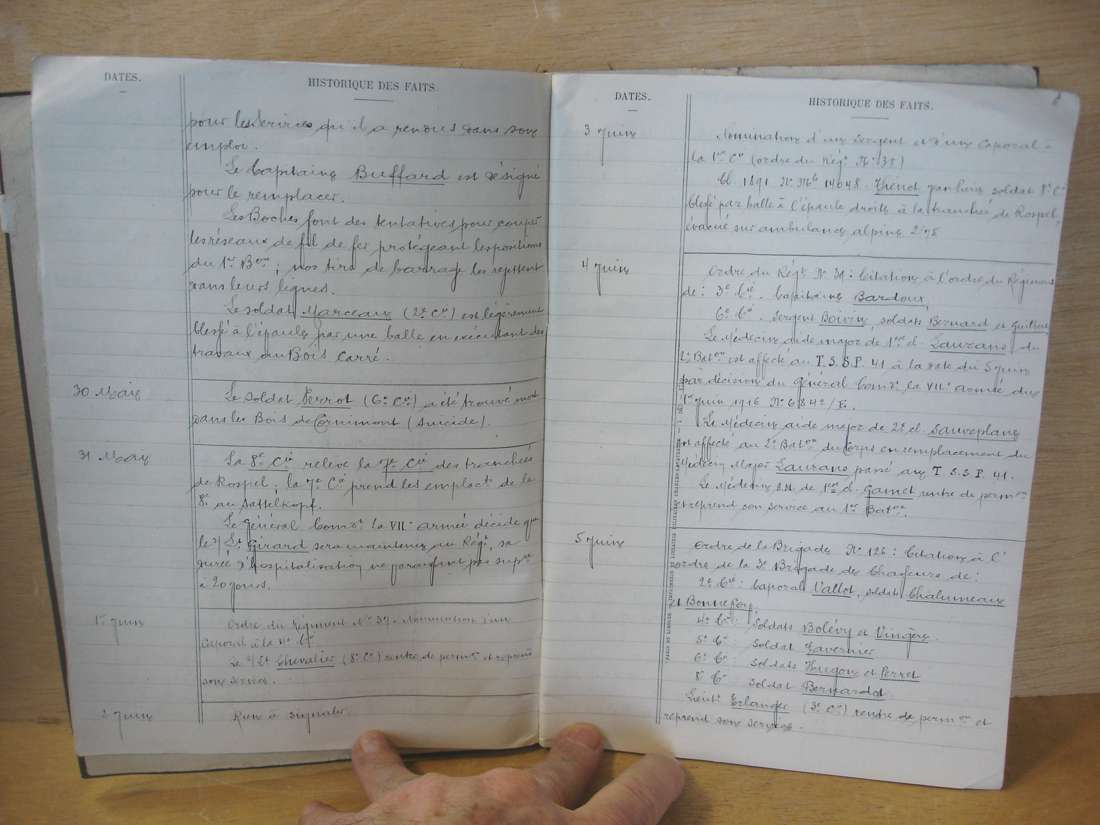 DATES.
HISTORIQUE DES FAITS.
pour les services qu'il a rendus dans son
emploi.
Le Capitaine Buffard est désigné
pour le remplacer.
Les Boches font des tentatives pour couper
les réseaux de fil de fer protégeant les positions
du 1er Bon, nos tirs de barrage les rejettent
dans leurs lignes.
Le soldat Marceau (2e Cie) est légèrement
blessé à l'épaule par une balle en exécutant des
travaux au Bois Carré.
30 Mai
Le soldat Perrot (6e Cie) a été trouvé mort
dans les Bois de (suicide).
31 Mai
La 8e Cie relève la 7e Cie des tranchées
de Rospel; la 7e Cie prend les emplacts de la
8e au Sattelkopf.
Le Général Comdt la VIIe armée décide que
le S/Lt Girard sera maintenu au Régt, sa
durée d'hospitalisation ne paraissant pas supre
à 20 jours.
1er Juin
Ordre du Régiment N° 37: Nomination d'un
Caporal à la 4e Cie
Le S/Lt Chevalier (8e Cie) rentre de permon et reprend
son service.
2 Juin
Rien à signaler.
DATES.
HISTORIQUE DES FAITS.
3 Juin
Nomination d'un Sergent et d'un Caporal à
la 1re Cie (ordre du Régt N° 38)
Cl. 1891 N° Mle 14648. soldat 8e Cie
blessé par balle à l'épaule droite à la tranchée de Rospel,
évacué sur ambulance alpine 2/75
4 Juin
Ordre du Régt N° 39: Citations à l'ordre du Régiment
de: 3e Cie. Capitaine Bardoux,
6e Cie. Sergent Boivin, soldats Bernard et
Le Médecin aide major de 1re cl. Laurans du
2e Baton est affecté au T.S.S.P. 41 à la date du 5 juin
par décision du Général Comdt la VIIe armée du
1er Juin 1916 N° 6842/E.
Le Médecin aide major de 2e cl. Sauveplane
est affecté au 2e Baton du Corps en remplacement du
Médecin Major Laurans passé au T.S.S.P. 41.
Le Médecin A.M. de 1re cl. Gamet rentre de permon
et reprend son service au 1er Baton.
5 Juin
Ordre de la Brigade N° 126: Citations à l'
ordre de la 3e Brigade de Chasseurs de:
2e Cie: Caporal Vallot, soldat Chalumeaux
et Bonnefoy,
4e Cie: Soldats Bolévy et Vingère.
5e Cie: Soldat Tavernier
6e Cie: Soldats Hugon et Perret
8e Cie Soldat Bernardot
Lieutt Erlanger (3e Cie) rentre de permon et
reprend son service.